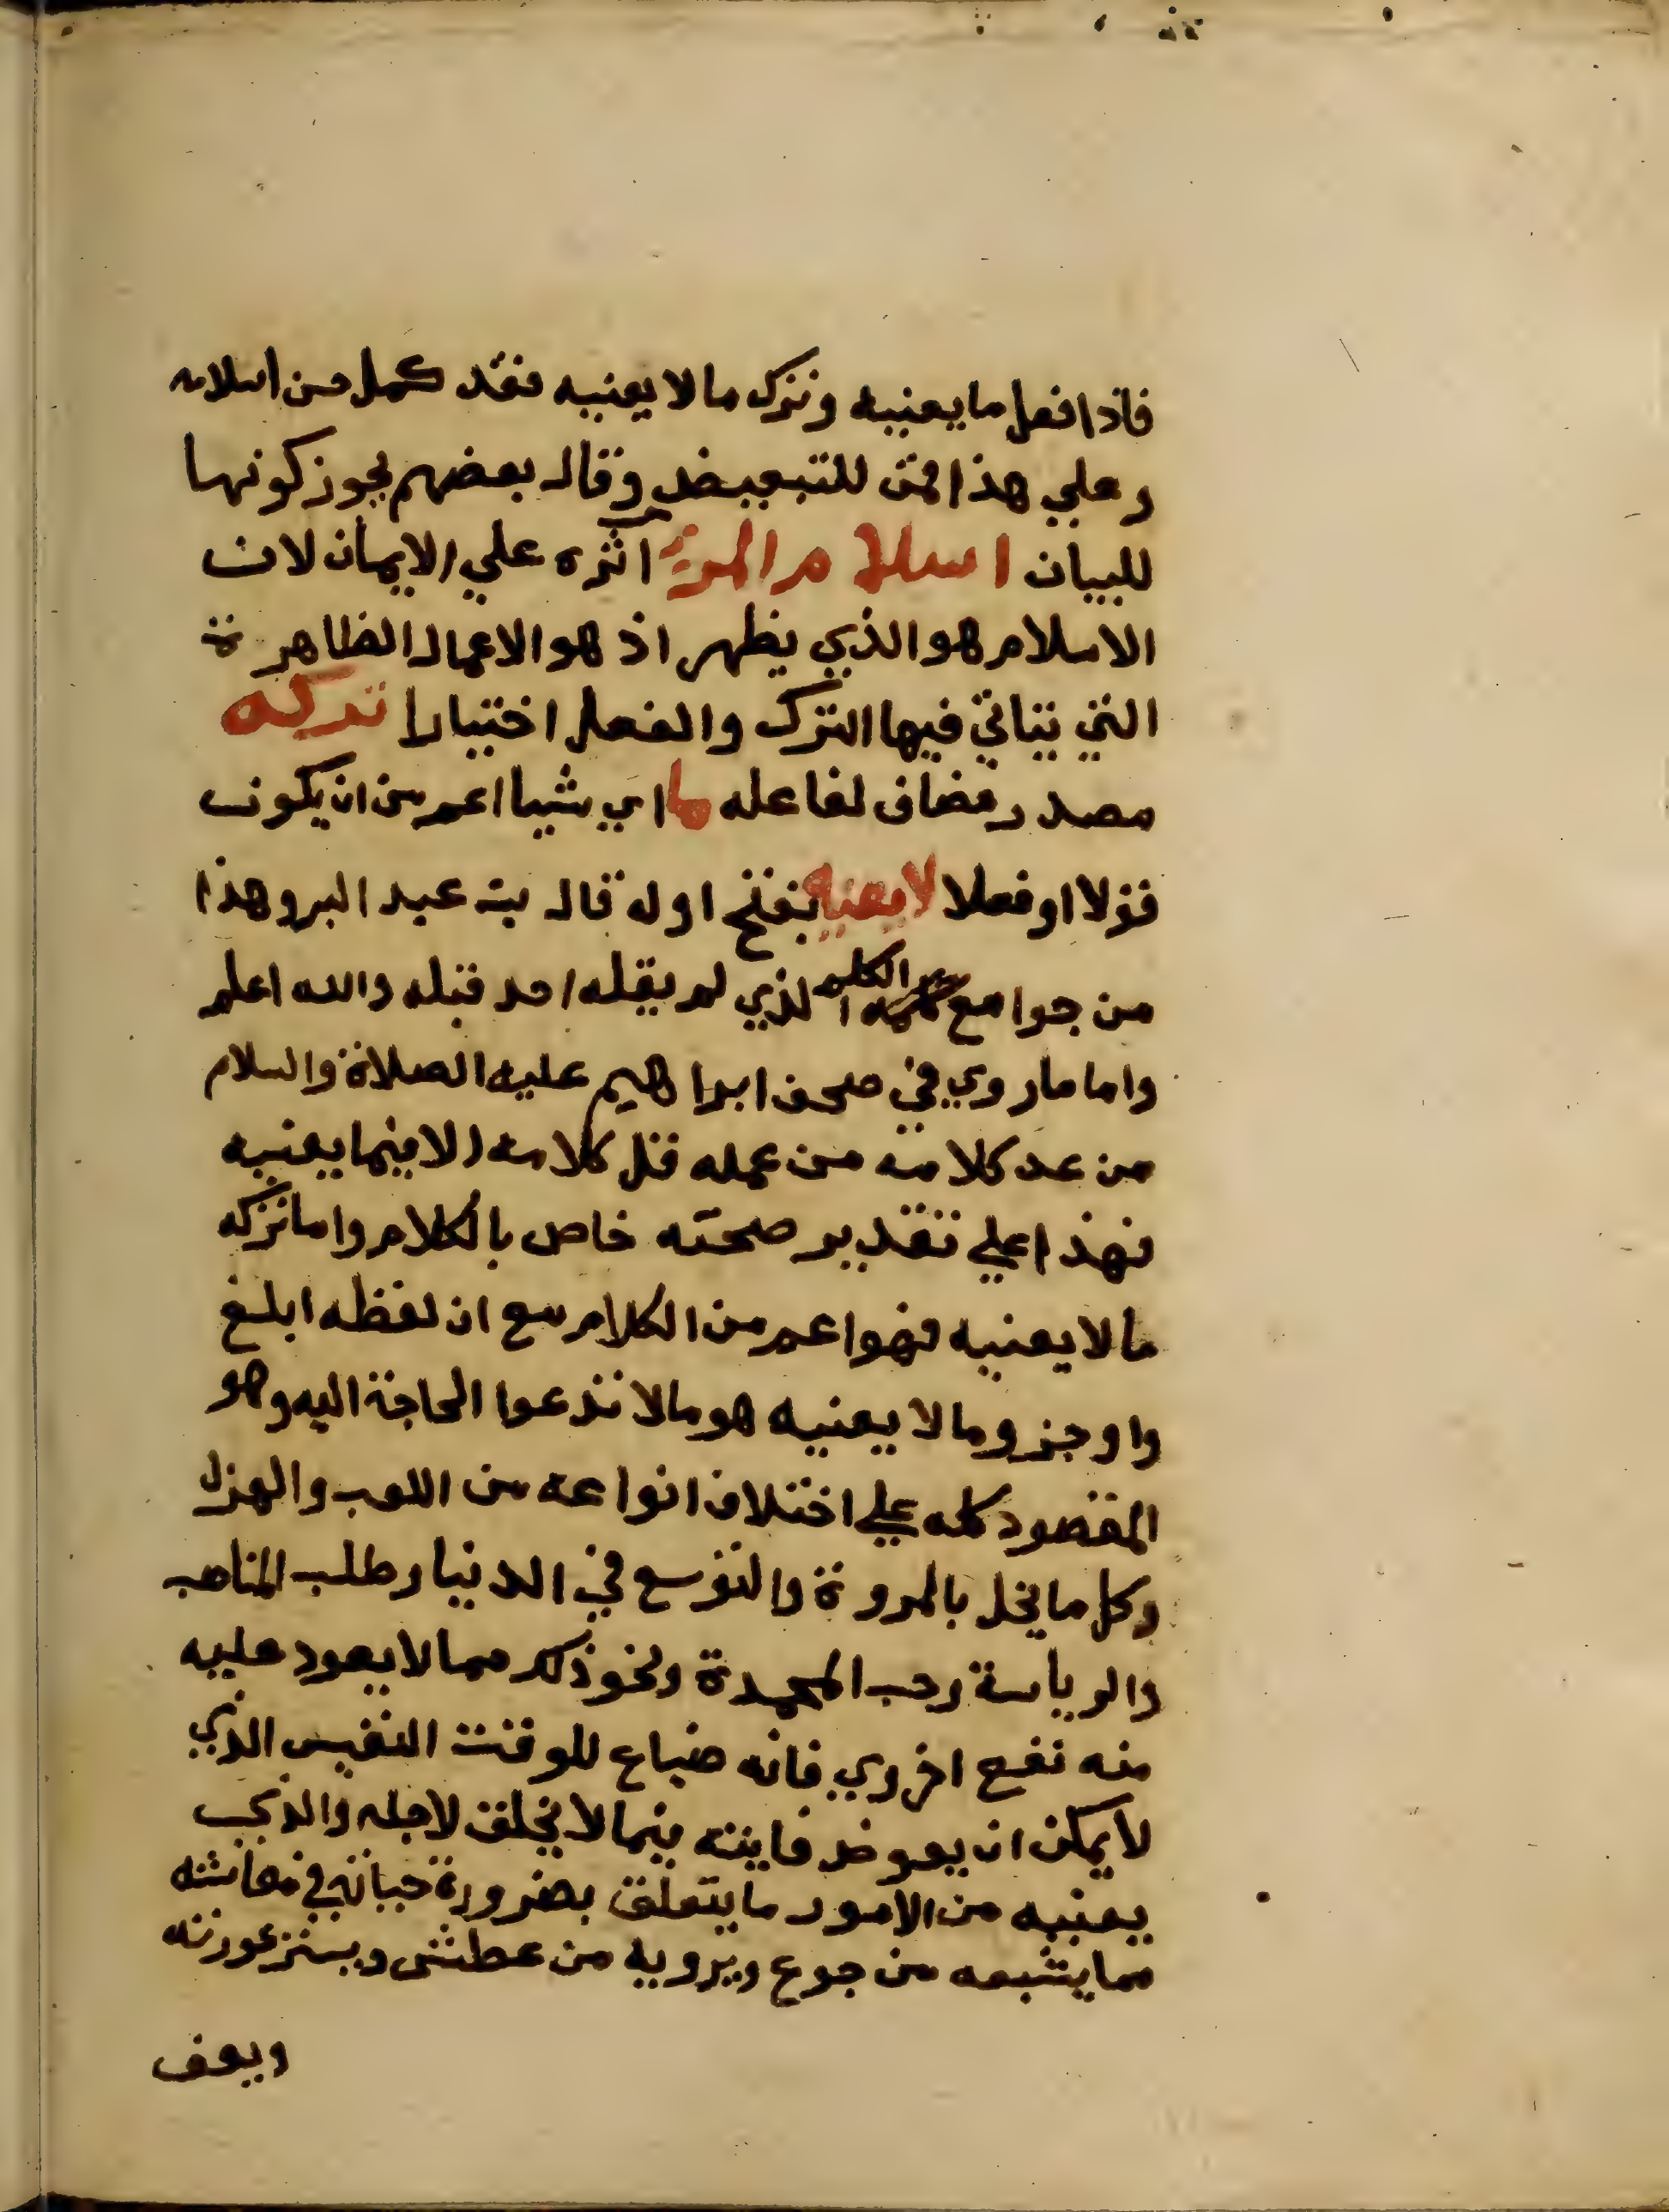 فاذا فعل ما يعنيه وترك ما لا يعنيه فقد كمل حسن اسلامه
وعلي هذا فمن للتبعيض وقال بعضهم يجوز كونها
للبيان اسلام المرء آثره علي الايمان لان
الاسلام هو الذي يظهر اذ هو الاعمال الظاهرة
التي يتاتي فيها الترك والفعل اختيارا تركه
مصدر مضاف لفاعله ما اي شيا اعم من ان يكون
قولا او فعلا لا يعنيه بفتح اوله قال بن عبد البر وهذا
من جوامع الكلم الذي لم يقله احد قبله والله اعلم
واما ما روي في صحف ابراهيم عليه الصلاة والسلام
من عد كلامه من عمله قل كلامه الا فيما يعنيه
فهذا علي تقدير صحته خاص بالكلام واما تركه
ما لا يعنيه فهو اعم من الكلام مع ان لفظه ابلغ
واوجز وما لا يعنيه هو ما لا تدعوا الحاجة اليه وهو
المقصود كله علي اختلاف انواعه من اللعب والهزل
وكل ما يخل بالمروة والتوسع في الدنيا وطلب المناصب
والرياسة وحب المحمدة ونحو ذلك مما لا يعود عليه
منه نفع اخروي فانه ضياع للوقت النفيس الذي
لا يمكن ان يعوض فايته فيما لا يخلق لاجله والذي
يعنيه من الامور ما يتعلق بضرورة حياته في معاشه
مما يشبعه من جوع ويرويه من عطش ويستر عورته
ويعف